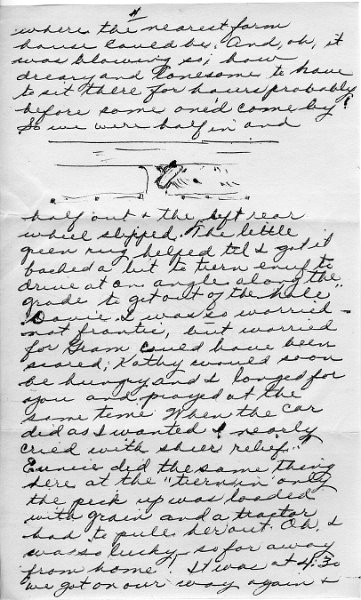 4
where the nearest farm
house could be. And, oh, it
was blowing so; how
dreary and lonesome to have
to sit there for hours probably
before some one'd come by!
So we were half in and
half out & the left rear
wheel slipped. The little
green rug helped til I got it
backed a bit to turn enuf to
drive at an angle along the
grade to get out of the hole.
Davie I was so worried -
not frantic, but worried
for Gram could have been
scared; Kathy would soon
be hungry and I longed for
you and prayed at the
same time. When the car
did as I wanted I nearly
cried with sheer relief.
Eunice did the same thing
here at the "turnin" only
the pick up was loaded
with grain and a tractor
had to pull her out. Oh, I
was so lucky so far away
from home! It was at 4:30
we got on our way again &